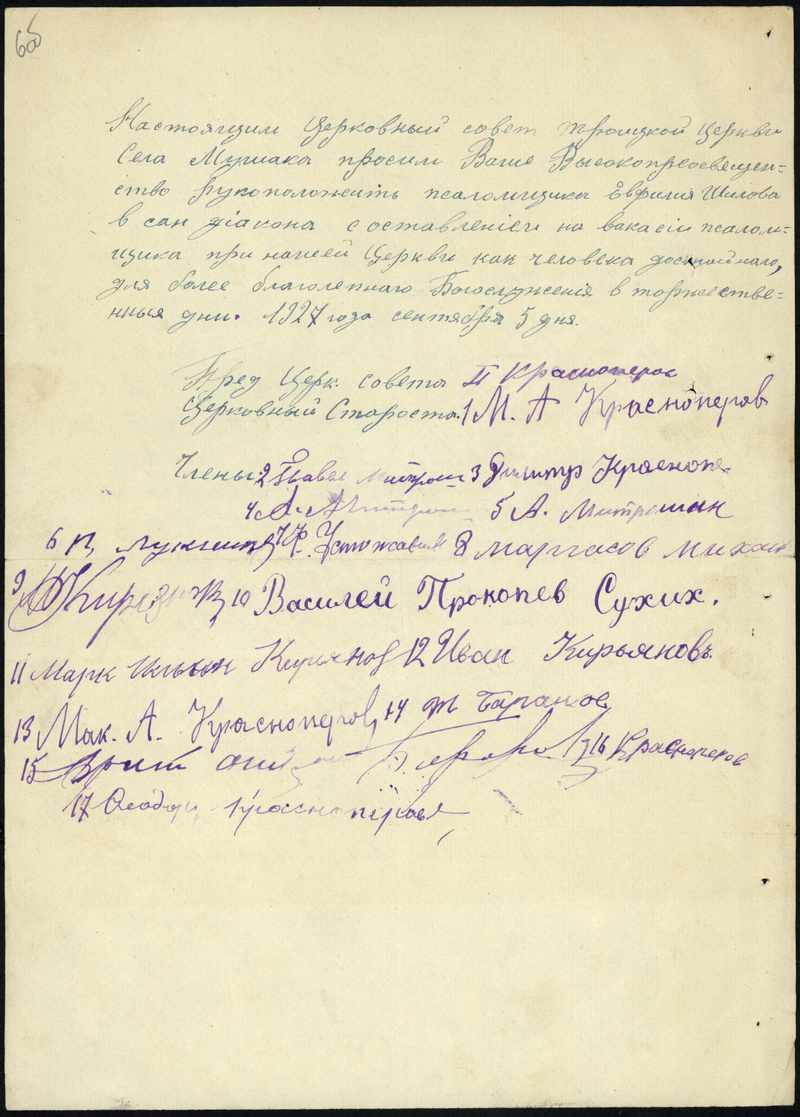 60б
Настоящим Церковный совет Троицкой Церкви
Села Мушака просим Ваше Высокопреосвещен=
ство рукоположить псаломщика Евфимия Шилова
в сан діакона с оставленіем на вакасіи псалом=
щика при нашей Церкви как человека достойнаго,
для более благолепнаго Богослуженія в торжестве=
нныя дни. 1927 года сентября 5 дня.
Пред Церк. совета П Красноперов
Церковный Староста. 1 М. А Красноперов
Члены: 2 Павел 3 Димитр Краснопе
4 А. 5 А. Митрошин
6 П 7 8 Маргасов Михаил
9 10 Василей Прокопев Сухих.
11 Марк Ильин Кирьянов 12 Иван Кирьяновъ
13 Мак. А. Красноперов 14 Баранов
15 16 Красноперов
17 Феодор Красноперовъ